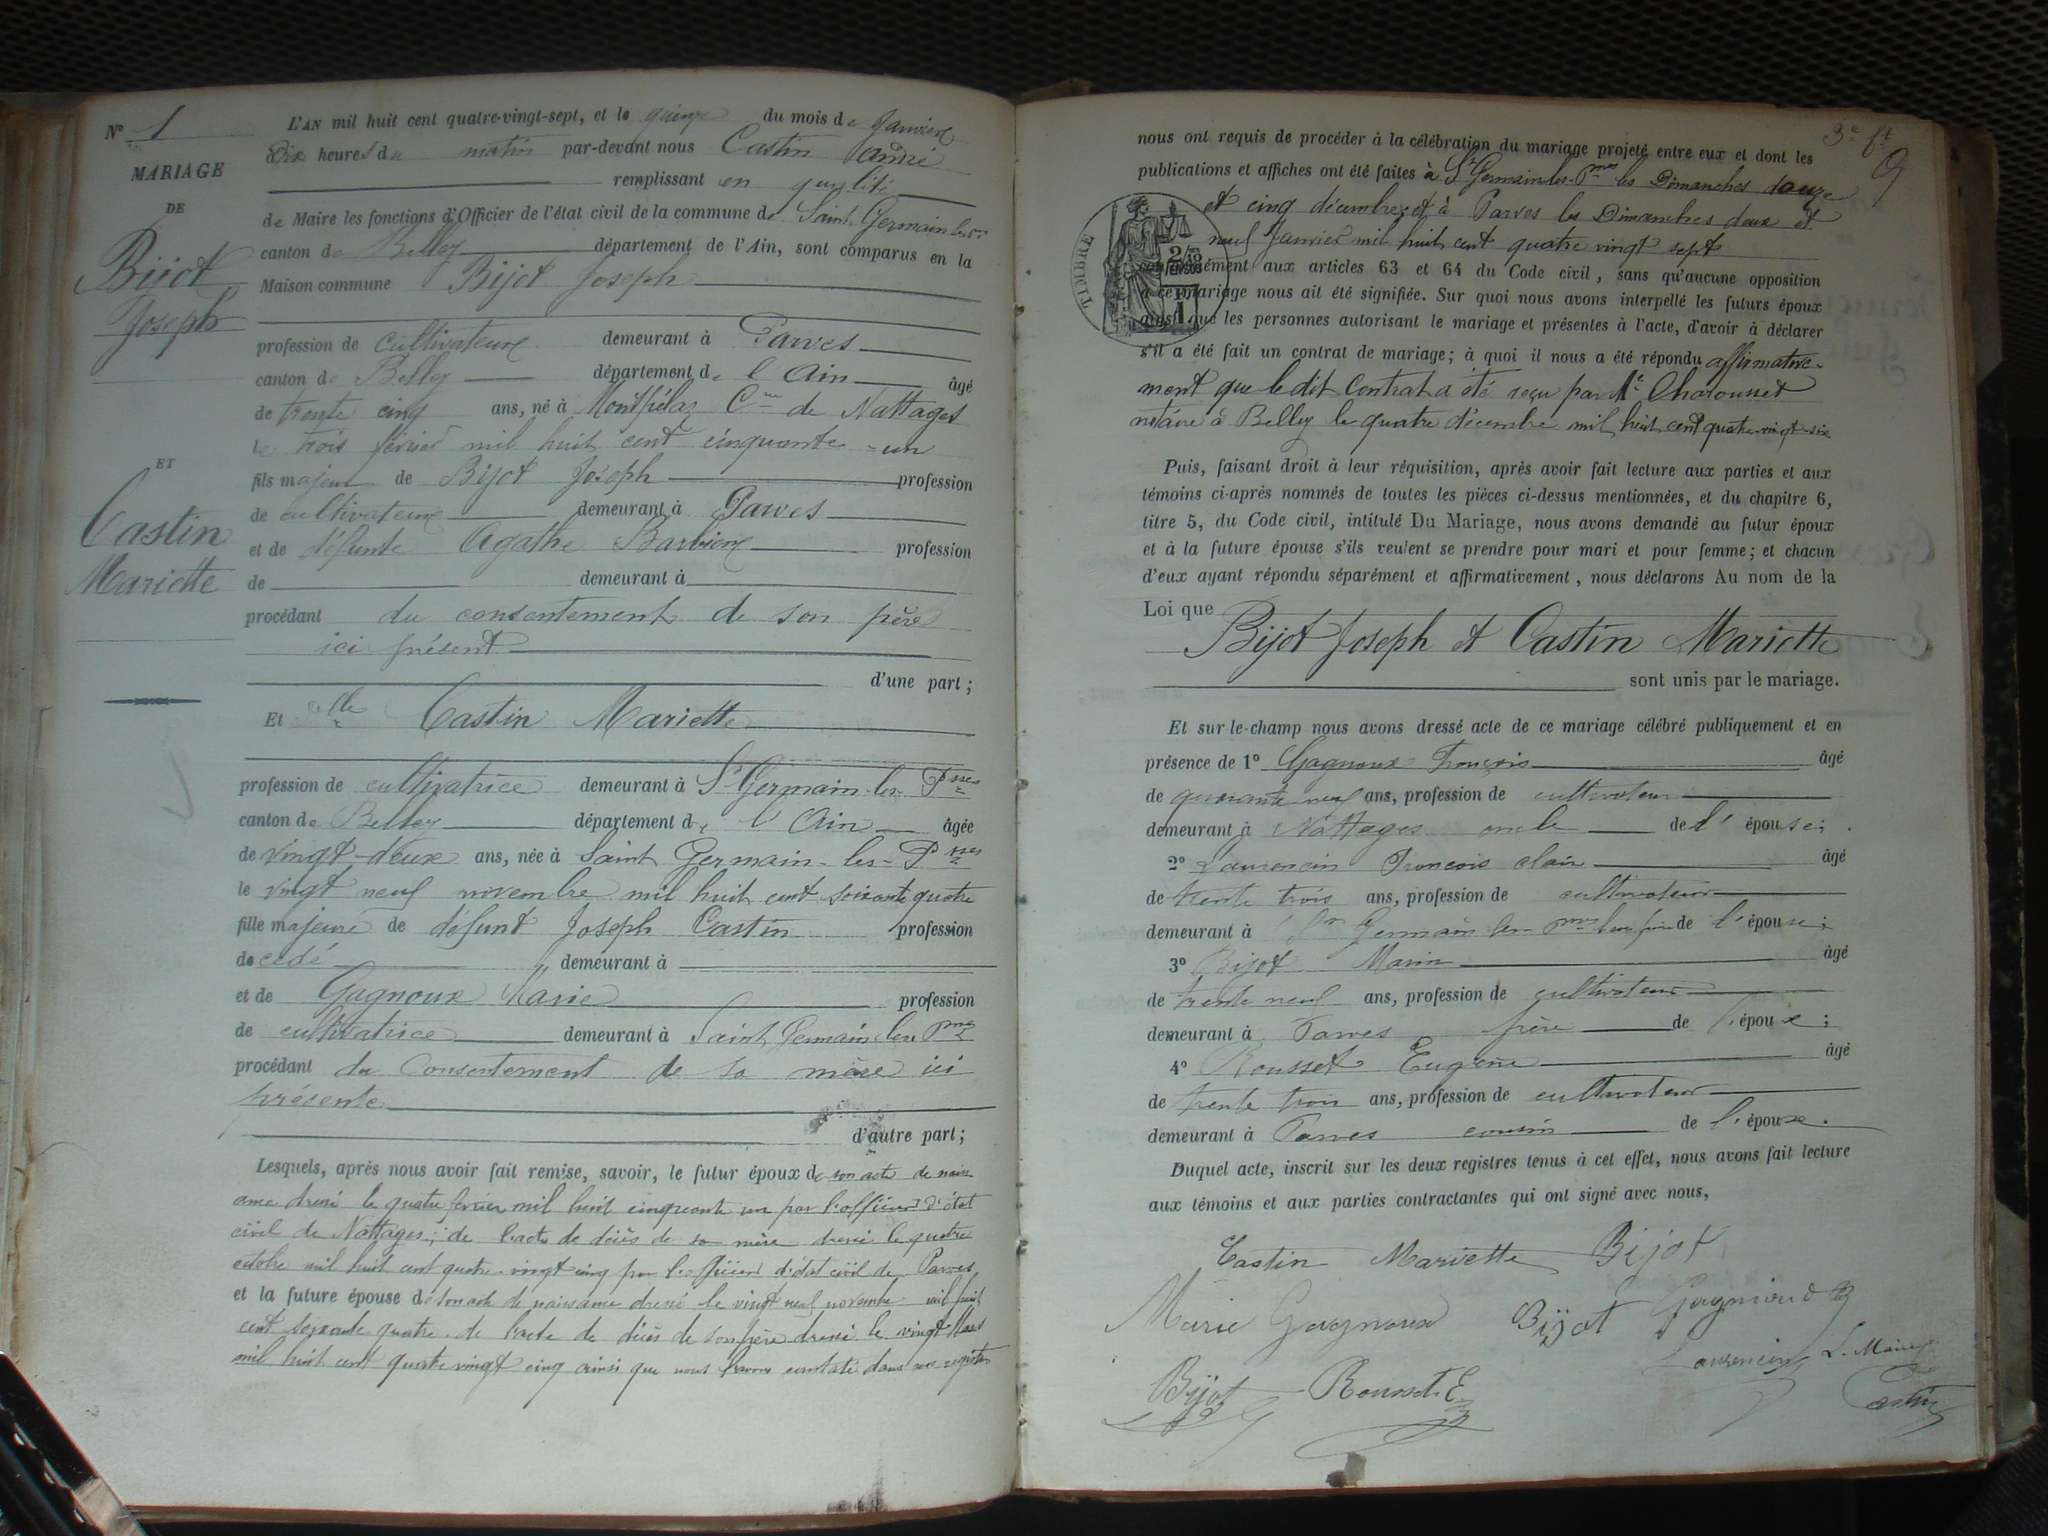 N° 1
MARIAGE
DE
Bijot
Joseph
ET
Castin
Mariette
L'AN mil huit cent quatre-vingt-sept, et le quinze du mois de Janvier
dix heures du matin par-devant nous Castin André
remplissant en qualité
de Maire les fonctions d'Officier de l'état civil de la commune de Saint Germain les
canton de Belley département de l'Ain, sont comparus en la
Maison commune Bijot Joseph
profession de cultivateur demeurant à Parves
canton de Belley département de l'Ain âgé
de trente cinq ans, né à Montpélaz Cne de Nattages
le trois février mil huit cent cinquante-un
fils majeur de Bijot Joseph profession
de cultivateur demeurant à Parves
et de défunte Agathe Barbier profession
de demeurant à
procédant du consentement de son père
ici présent
d'une part;
Et elle Castin Mariette
profession de cultivatrice demeurant à St Germain-les-Psses
canton de Belley département de l'Ain âgée
de vingt-deux ans, née à Saint Germain-les-Psses
le vingt neuf novembre mil huit cent soixante quatre
fille majeure de défunt Joseph Castin profession
décédé demeurant à
et de Gagnoux Marie profession
de cultivatrice demeurant à Saint Germain les
procédant du Consentement de sa mère ici
présente
d'autre part;
Lesquels, après nous avoir fait remise, savoir, le futur époux de son acte de nais
ance dressé le quatre février mil huit cinquante un par l'officier d'état
civil de Nattages; de l'acte de décès de sa mère dressé le quatre
octobre mil huit cent quatre-vingt cinq par l'officier d'état civil de Parves
et la future épouse de son acte de naissance dressé le vingt neuf novembre mil huit
cent soixante quatre de l'acte de décès de son père dressé le vingt Mars
mil huit cent quatre vingt cinq ainsi que nous l'avons constaté dans nos registres
3e ft
9
nous ont requis de procéder à la célébration du mariage projeté entre eux et dont les
publications et affiches ont été faites à St Germain-les-Pmes les Dimanches douze
et cinq décembre; et à Parves les Dimanches deux et
neuf Janvier mil huit cent quatre vingt sept
TIMBRE
conformément aux articles 63 et 64 du Code civil, sans qu'aucune opposition
à ce mariage nous ait été signifiée. Sur quoi nous avons interpellé les futurs époux
ainsi que les personnes autorisant le mariage et présentes à l'acte, d'avoir à déclarer
s'il a été fait un contrat de mariage; à quoi il nous a été répondu affirmative-
ment que le dit Contrat a été reçu par Me Charousset
notaire à Belley le quatre décembre mil huit cent quatre vingt six
Puis, faisant droit à leur réquisition, après avoir fait lecture aux parties et aux
témoins ci-après nommés de toutes les pièces ci-dessus mentionnées, et du chapitre 6,
titre 5, du Code civil, intitulé Du Mariage, nous avons demandé au futur époux
et à la future épouse s'ils veulent se prendre pour mari et pour femme; et chacun
d'eux ayant répondu séparément et affirmativement, nous déclarons Au nom de la
Loi que
Bijot Joseph et Castin Mariette
sont unis par le mariage.
Et sur-le-champ nous avons dressé acte de ce mariage célébré publiquement et en
présence de 1° Gagnoux François âgé
de quarante neuf ans, profession de cultivateur
demeurant à Nattages oncle de l'épouse;
2° Laurencin François alain âgé
de trente trois ans, profession de cultivateur
demeurant à St Germain les Pmes de l'épouse;
3° Bijot Marin âgé
de trente neuf ans, profession de cultivateur
demeurant à Parves frère de l'époux;
4° Rousset Eugène âgé
de trente trois ans, profession de cultivateur
demeurant à Parves cousin de l'époux.
Duquel acte, inscrit sur les deux registres tenus à cet effet, nous avons fait lecture
aux témoins et aux parties contractantes qui ont signé avec nous,
Castin Mariette Bijot
Marie Gagnoux Bijot
Laurencin L. Maire
Bijot Rousset E
Castin